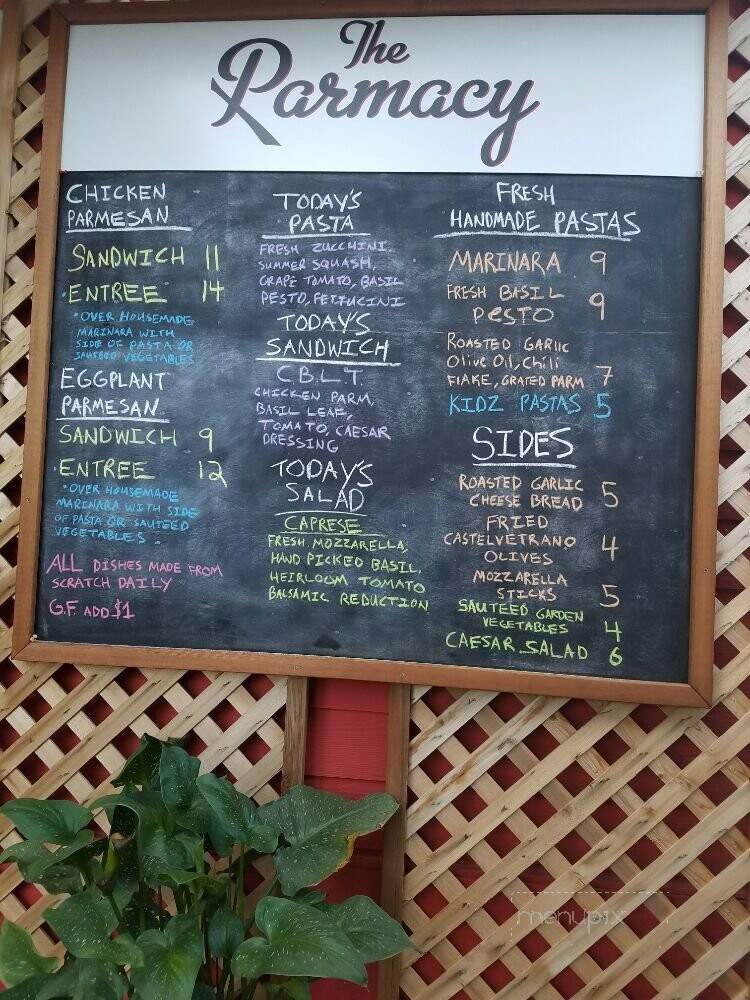 The
Parmacy
CHICKEN
PARMESAN
SANDWICH 11
ENTREE 14
• OVER HOUSEMADE
MARINARA WITH
SIDE OF PASTA OR
SAUTEED VEGETABLES
EGGPLANT
PARMESAN
SANDWICH 9
ENTREE 12
• OVER HOUSEMADE
MARINARA WITH SIDE
OF PASTA OR SAUTEED
VEGETABLES
ALL DISHES MADE FROM
SCRATCH DAILY
G.F. ADD $1
TODAY'S
PASTA
FRESH ZUCCHINI,
SUMMER SQUASH,
GRAPE TOMATO, BASIL
PESTO, FETTUCINI
TODAY'S
SANDWICH
C.B.L.T.
CHICKEN PARM,
BASIL LEAF,
TOMATO, CAESAR
DRESSING
TODAY'S
SALAD
CAPRESE
FRESH MOZZARELLA,
HAND PICKED BASIL,
HEIRLOOM TOMATO
BALSAMIC REDUCTION
FRESH
HANDMADE PASTAS
MARINARA 9
FRESH BASIL
PESTO 9
ROASTED GARLIC
Olive Oil, Chili
FLAKE, GRATED PARM 7
KIDZ PASTAS 5
SIDES
ROASTED GARLIC
CHEESE BREAD 5
FRIED
CASTELVETRANO
OLIVES 4
MOZZARELLA
STICKS 5
SAUTEED GARDEN
VEGETABLES 4
CAESAR SALAD 6
menupix